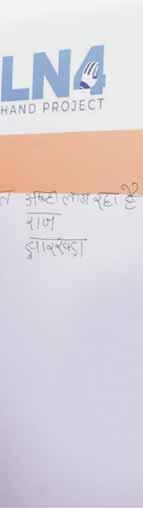 LN4
HAND PROJECT
अच्छा लग रहा है
राज
झारखण्ड